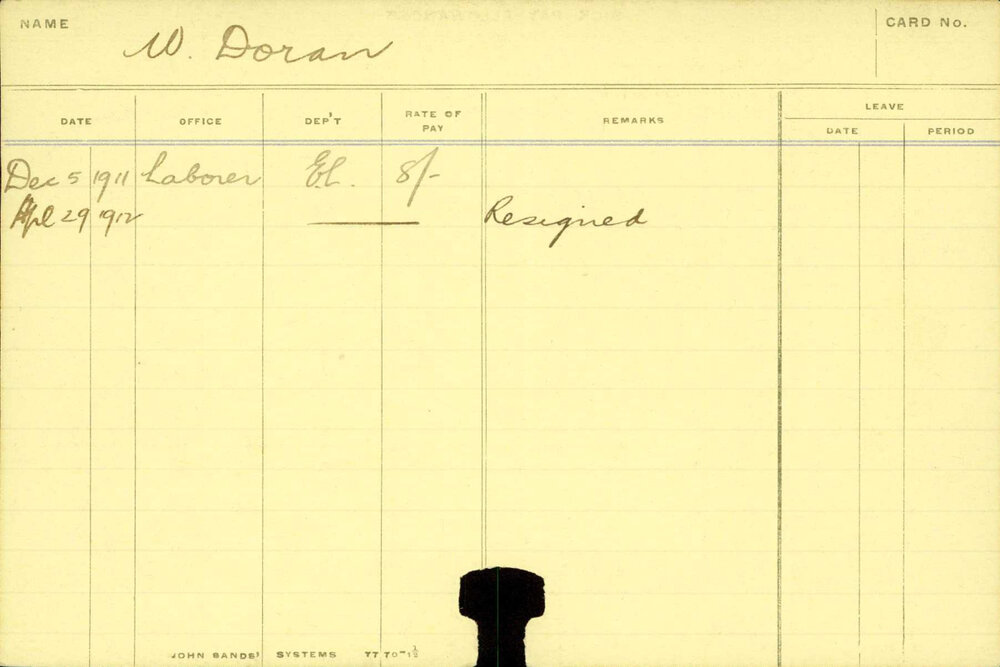 NAME W. Doran CARD No.
DATE OFFICE DEP'T RATE OF PAY REMARKS LEAVE
DATE PERIOD
Dec 5 1911 Laborer El. 8/-
Apl 29 1912 Resigned
JOHN SANDS' SYSTEMS 7770-1½